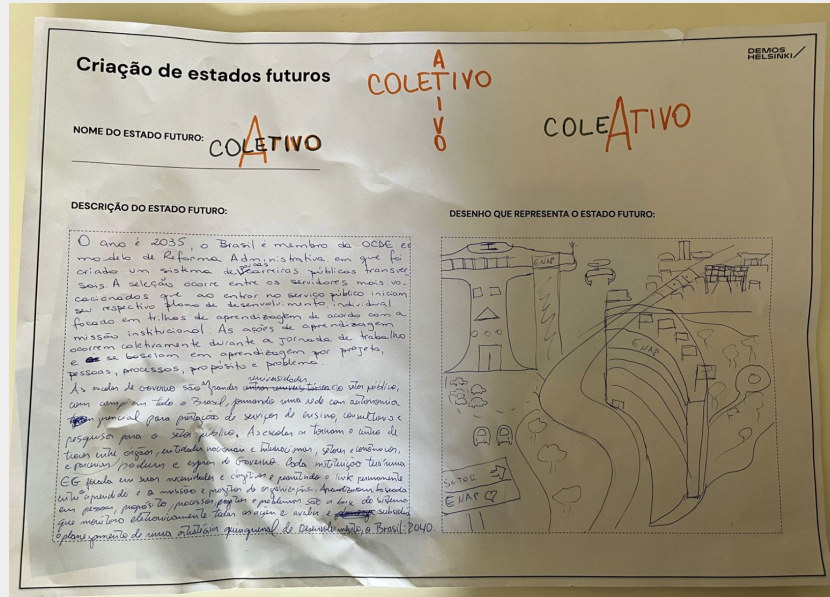 Criação de estados futuros
A
COLETIVO
I
V
O
DEMOS
HELSINKI
NOME DO ESTADO FUTURO: COLETIVO
A
COLEATIVO
DESCRIÇÃO DO ESTADO FUTURO:
O ano é 2035, o Brasil é membro da OCDE e é
modelo de Reforma Administrativa em que foi
criado um sistema de carreiras públicas transver
sais. A seleção ocorre entre os servidores mais vo-
cacionados que ao entrar no serviço público iniciam
seu respectivo plano de desenvolvimento individual
focado em trilhas de aprendizagem de acordo com a
missão institucional. As ações de aprendizagem
ocorrem coletivamente durante a jornada de trabalho
e se baseiam em aprendizagem por projeto,
pessoas, processos, propósito e problema.
universidades
As escolas de Governo são grandes do setor público,
com campi em todo o Brasil, formando uma rede com autonomia
para prestação de serviços de ensino, consultoria e
pesquisa para o setor público. As escolas se tornam o centro de
trocas entre órgãos, entidades nacionais e internacionais, setores econômicos,
e Governo. Cada instituição tem uma
EG focada em suas necessidades e permitindo o link permanente
entre o aprendido e a missão e projetos da organização. Aprendizagem baseada
em pessoas, propósito, processos, projetos e problemas são a base do sistema
que monitora eletronicamente todas as ações e avalia e subsidia
o planejamento de uma estratégia quinquenal de Desenvolvimento, o Brasil 2040.
DESENHO QUE REPRESENTA O ESTADO FUTURO:
ENAP
ENAP
SETOR
ENAP